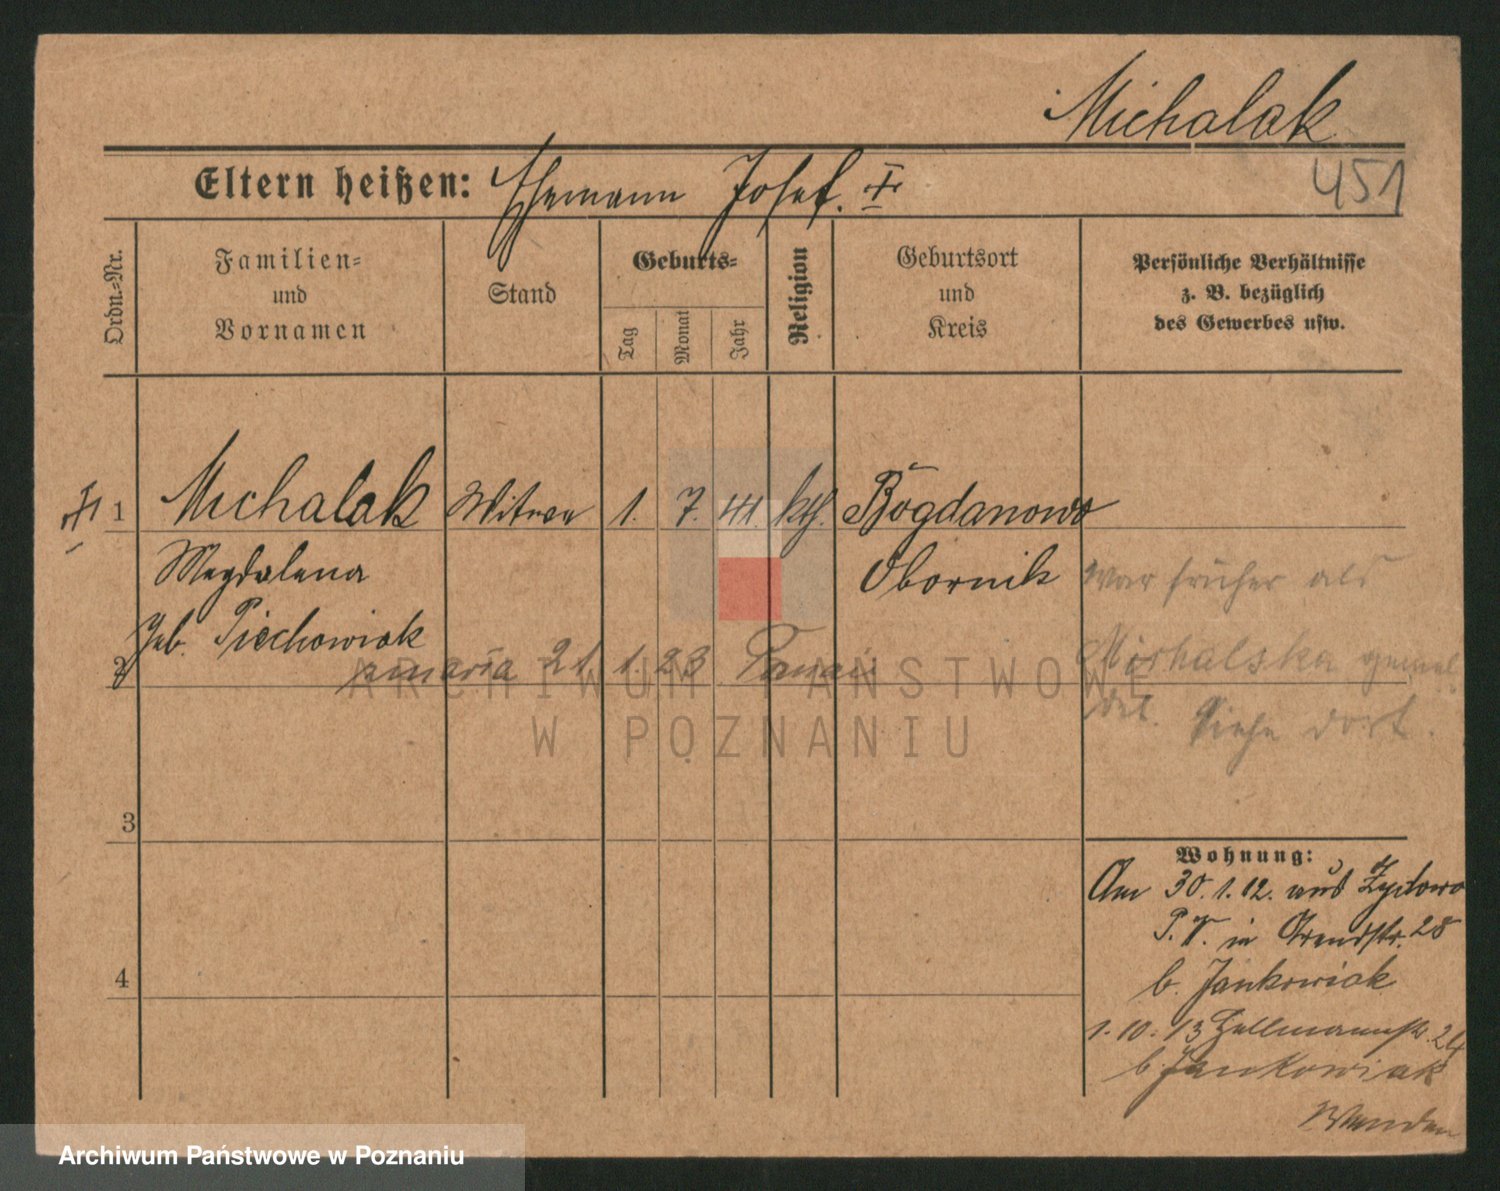 Michalak
451
Eltern heißen: Ehemann Josef. †
Ordn.=Nr.
Familien=
und
Vornamen
Stand
Geburts=
Tag
Monat
Jahr
Religion
Geburtsort
und
Kreis
Persönliche Verhältnisse
z. B. bezüglich
des Gewerbes usw.
† 1 Michalak Witwe 1. 7. 41. kth. Bogdanowo
Magdalena Obornik
geb. Piechowiak
war früher als
Michalska gemel
det. Siehe dort.
2 zmarła 21 1. 23 Poznań
3
4
Wohnung:
Am 30.1.12. aus Żydowo
P. T. in 28
b. Jankowiak
1.10.13 24
b. Jankowiak
Wenden
ARCHIWUM PAŃSTWOWE
W POZNANIU
Archiwum Państwowe w Poznaniu